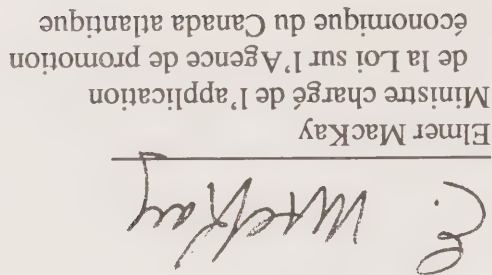 E. MacKay
Elmer MacKay
Ministre chargé de l'application
de la Loi sur l'Agence de promotion
économique du Canada atlantique